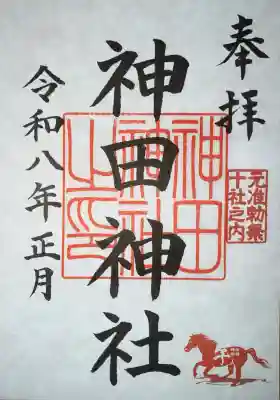 奉拝
元准勅祭
十社之内
神田神社
神田
神社
之印
令和八年正月